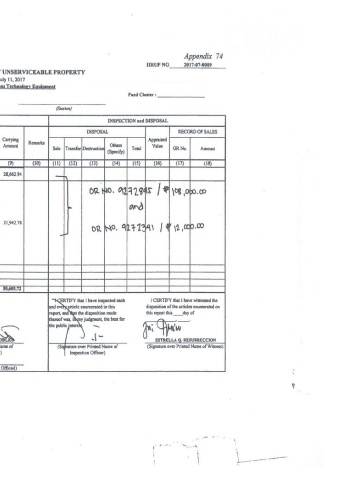 Appendix 74
IIRUP NO 2017-07-0009
UNSERVICEABLE PROPERTY
July 11, 2017
Technology Equipment
Fund Cluster :
(Station)
INSPECTION and DISPOSAL
DISPOSAL
RECORD OF SALES
Carrying Amount
Remarks
Sale
Transfer
Destruction
Others (Specify)
Total
Appraised Value
OR No.
Amount
(9) (10) (11) (12) (13) (14) (15) (16) (17) (18)
28,662.94
OR NO. 9272895 / ₱108,000.00
and
OR NO. 9272391 / ₱12,000.00
I CERTIFY that I have inspected each
and every article enumerated in this
report, and that the disposition made
thereof was, in my judgment, the best for
the public interest.
(Signature over Printed Name of
Inspection Officer)
I CERTIFY that I have witnessed the
disposition of the articles enumerated on
this report this ___ day of
ESTRELLA Q. RESURRECCION
(Signature over Printed Name of Witness)
Official)